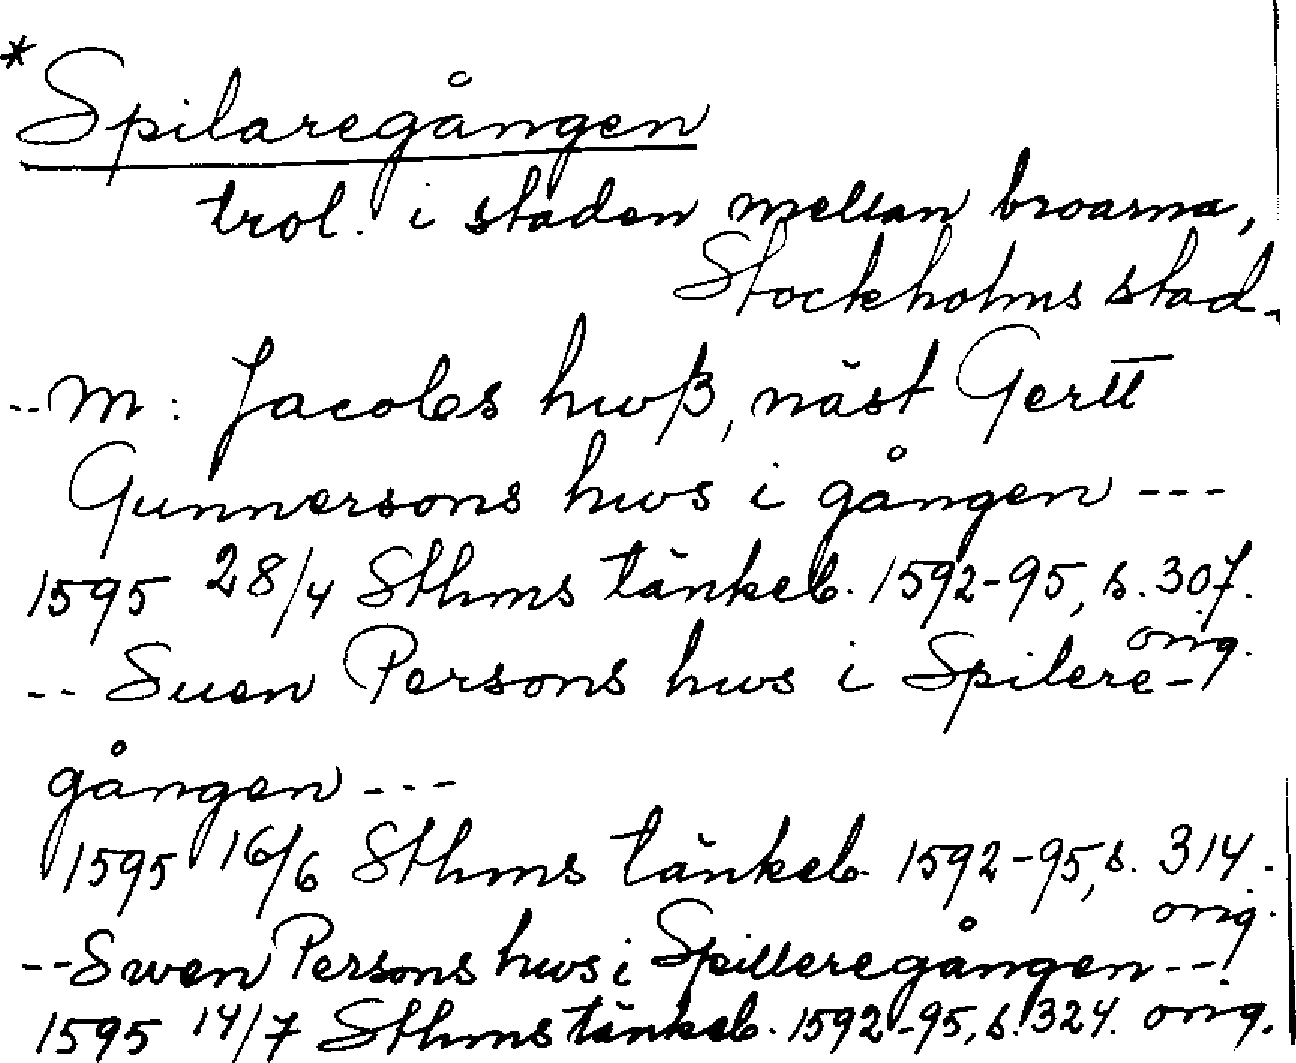 * Spilaregången
trol. i staden mellan broarna,
Stockholms stad.
-- M: Jacobs hwß, näst Gertt
Gunnersons hws i gången ---
1595 28/4 Sthms tänkeb. 1592-95, s. 307.
orig.
-- Suen Persons hws i Spilere-
gången ---
1595 16/6 Sthms tänkeb. 1592-95, s. 314.
orig.
-- Swen Persons hws i Spilleregången --
1595 14/7 Sthms tänkeb. 1592-95, s. 324. orig.